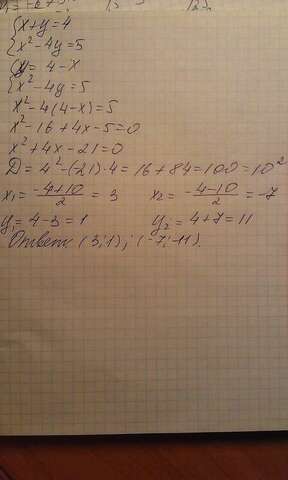 {x+y=4
{x²-4y=5
{y=4-x
{x²-4y=5
x²-4(4-x)=5
x²-16+4x-5=0
x²+4x-21=0
D=4²-(21)·4=16+84=100=10²
x₁=(-4+10)/2=3 x₂=(-4-10)/2=-7
y₁=4-3=1 y₂=4+7=11
Ответ: (3;1); (-7;11).